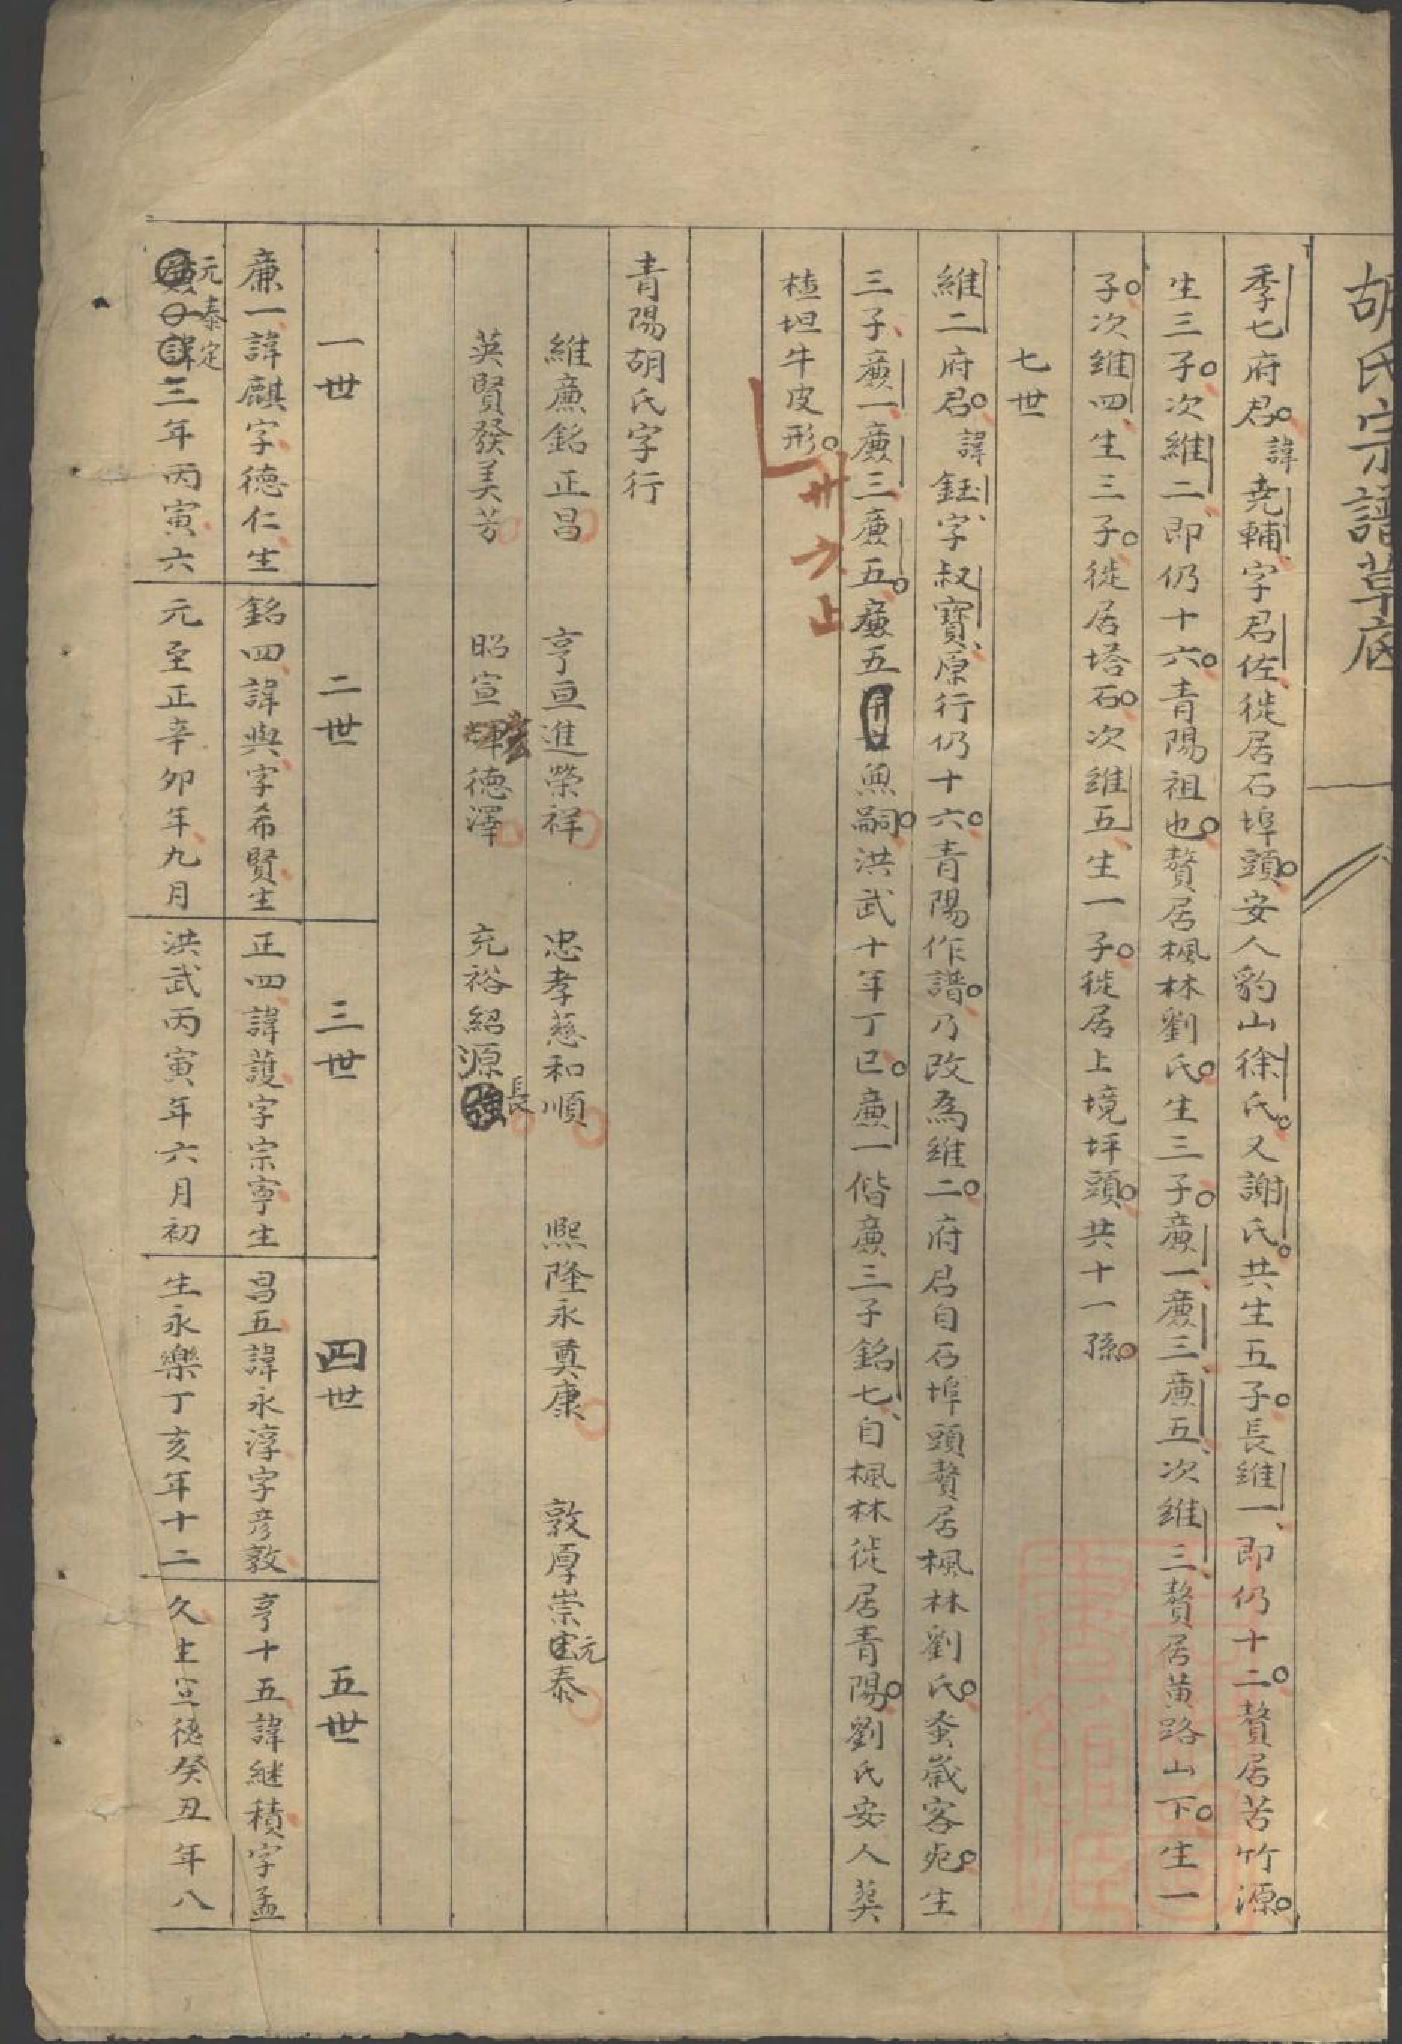 胡氏宗譜草底
季七府君諱堯輔字君佐徙居石埠頭安人豹山徐氏又謝氏共生五子長維一即仍十二贅居苦竹源
生三子次維二即仍十六青陽祖也贅居楓林劉氏生三子廉一廉三廉五次維三贅居黄路山下生一
子次維四生三子徙居塔石次維五生一子徙居上境坪頭共十一孫
七世
維二府君諱鈺字叔寳原行仍十六青陽作譜乃改為維二府君自石埠頭贅居楓林劉氏蚤歲客死生
三子廉一廉三廉五廉五無嗣洪武十年丁巳廉一偕廉三子銘七自楓林徙居青陽劉氏安人葬
楂坦牛皮形
卅六上
青陽胡氏字行
維廉銘正昌 亨亘進榮祥 忠孝慈和順 熙隆永奠康 敦厚崇元泰
英賢發美芳 昭宣德澤 充裕紹源長
一世 二世 三世 四世 五世
廉一諱麒字德仁生 銘四諱與字希賢生 正四諱護字宗寧生 昌五諱永淳字彦敦 亨十五諱継積字孟
元泰定三年丙寅六 元至正辛卯年九月 洪武丙寅年六月初 生永樂丁亥年十二 久生宣德癸丑年八